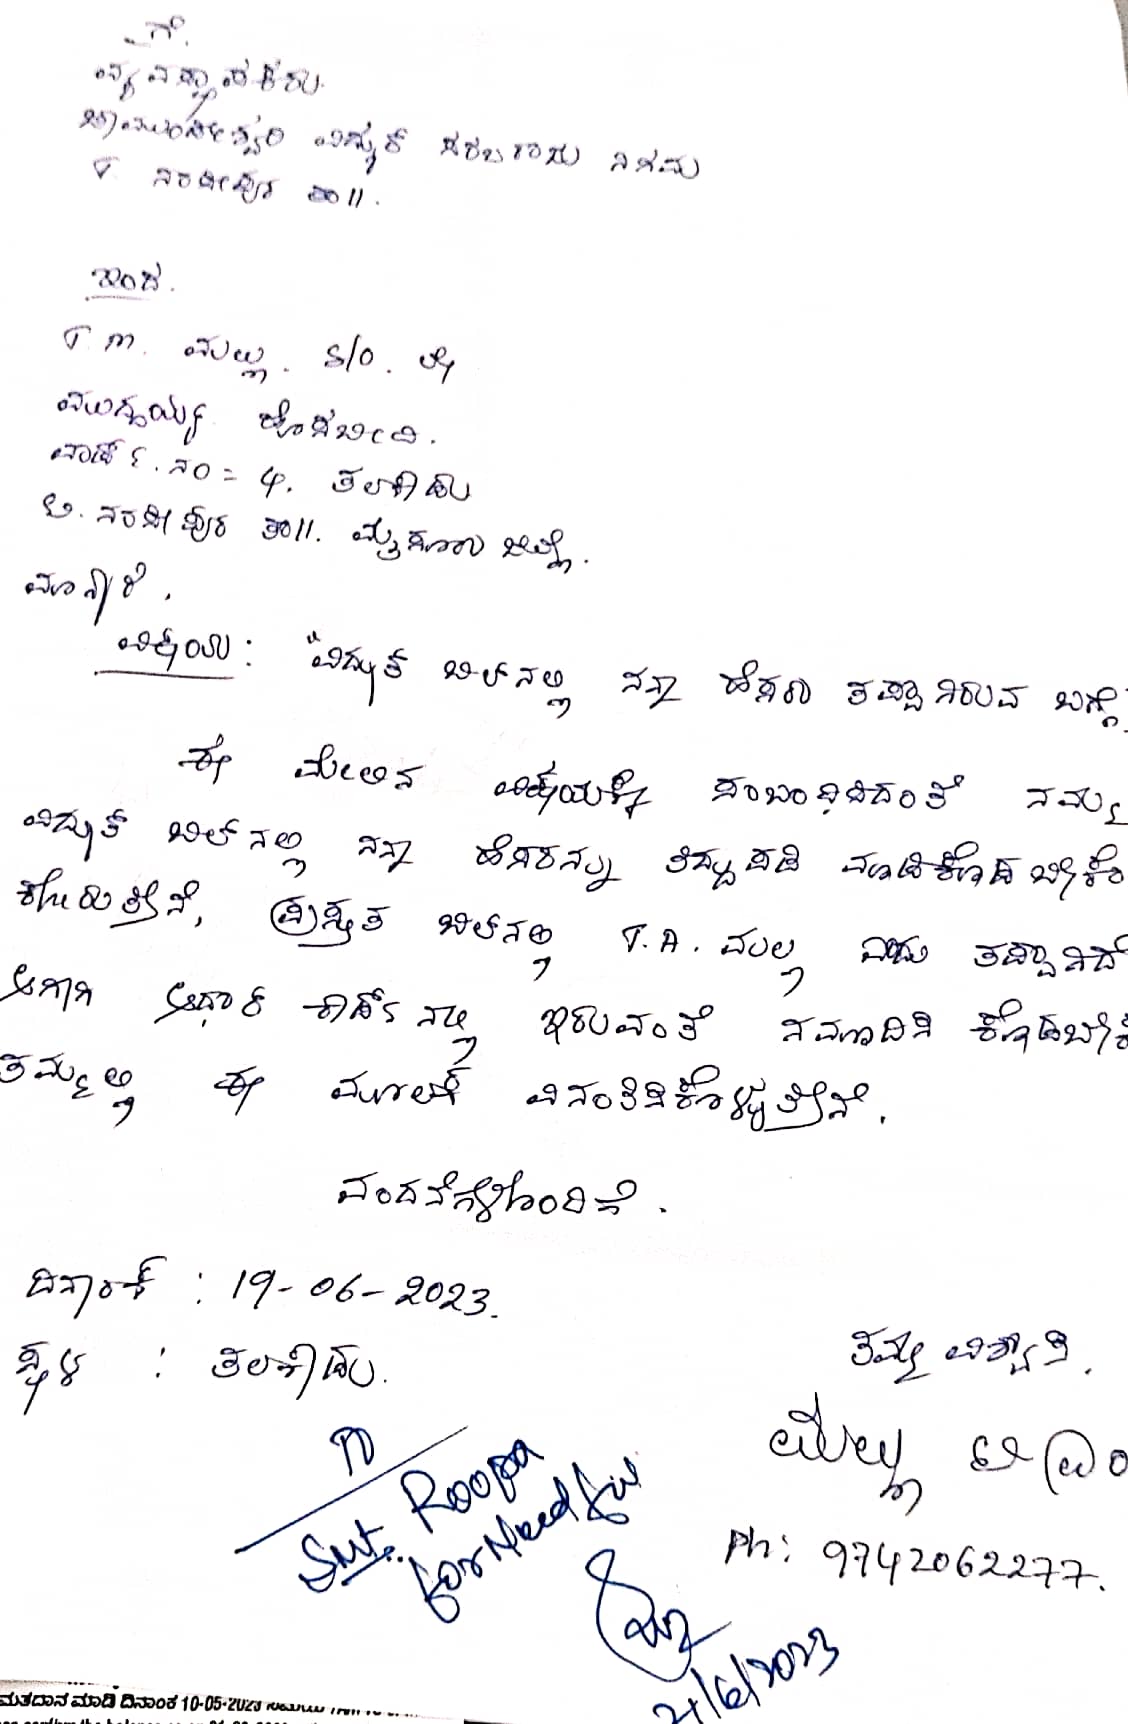 ಗೆ.
ವ್ಯವಸ್ಥಾಪಕರು.
ಚಾಮುಂಡೇಶ್ವರಿ ವಿದ್ಯುತ್ ಸರಬರಾಜು ನಿಗಮ
T. ನರಸೀಪುರ ತಾ||.
ಇಂದ.
T. M. ಮಲ್ಲ. S/O. ಲೇ
ಮುದ್ದಯ್ಯ ಹೊಸಬೀದಿ.
ವಾರ್ಡ್ ನಂ = 4. ತಲಕಾಡು
ಟಿ. ನರಸೀಪುರ ತಾ||. ಮೈಸೂರು ಜಿಲ್ಲೆ.
ಮಾನ್ಯರೆ,
ವಿಷಯ: "ವಿದ್ಯುತ್ ಬಿಲ್‌ನಲ್ಲಿ ನನ್ನ ಹೆಸರು ತಪ್ಪಾಗಿರುವ ಬಗ್ಗೆ
ಈ ಮೇಲಿನ ವಿಷಯಕ್ಕೆ ಸಂಬಂಧಿಸಿದಂತೆ ನಮ್ಮ
ವಿದ್ಯುತ್ ಬಿಲ್‌ನಲ್ಲಿ ನನ್ನ ಹೆಸರನ್ನು ತಿದ್ದುಪಡಿ ಮಾಡಿಕೊಡಬೇಕೆ
ಕೋರುತ್ತೇನೆ, ಪ್ರಸ್ತುತ ಬಿಲ್‌ನಲ್ಲಿ T.A. ಮಲ್ಲ ಎಂದು ತಪ್ಪಾಗಿದೆ
ಆಗಾಗಿ ಆಧಾರ್ ಕಾರ್ಡ್‌ನಲ್ಲಿ ಇರುವಂತೆ ನಮೂದಿಸಿ ಕೊಡಬೇಕೆ
ತಮ್ಮಲ್ಲಿ ಈ ಮೂಲಕ ವಿನಂತಿಸಿಕೊಳ್ಳುತ್ತೇನೆ.
ವಂದನೆಗಳೊಂದಿಗೆ.
ದಿನಾಂಕ : 19-06-2023.
ಸ್ಥಳ : ತಲಕಾಡು.
ತಮ್ಮ ವಿಶ್ವಾಸಿ.
ಮಲ್ಲ
Ph: 9742062277.
Smt. Roopa
for Need ful
21/6/2023
ಮತದಾನ ಮಾಡಿ ದಿನಾಂಕ 10-05-2023